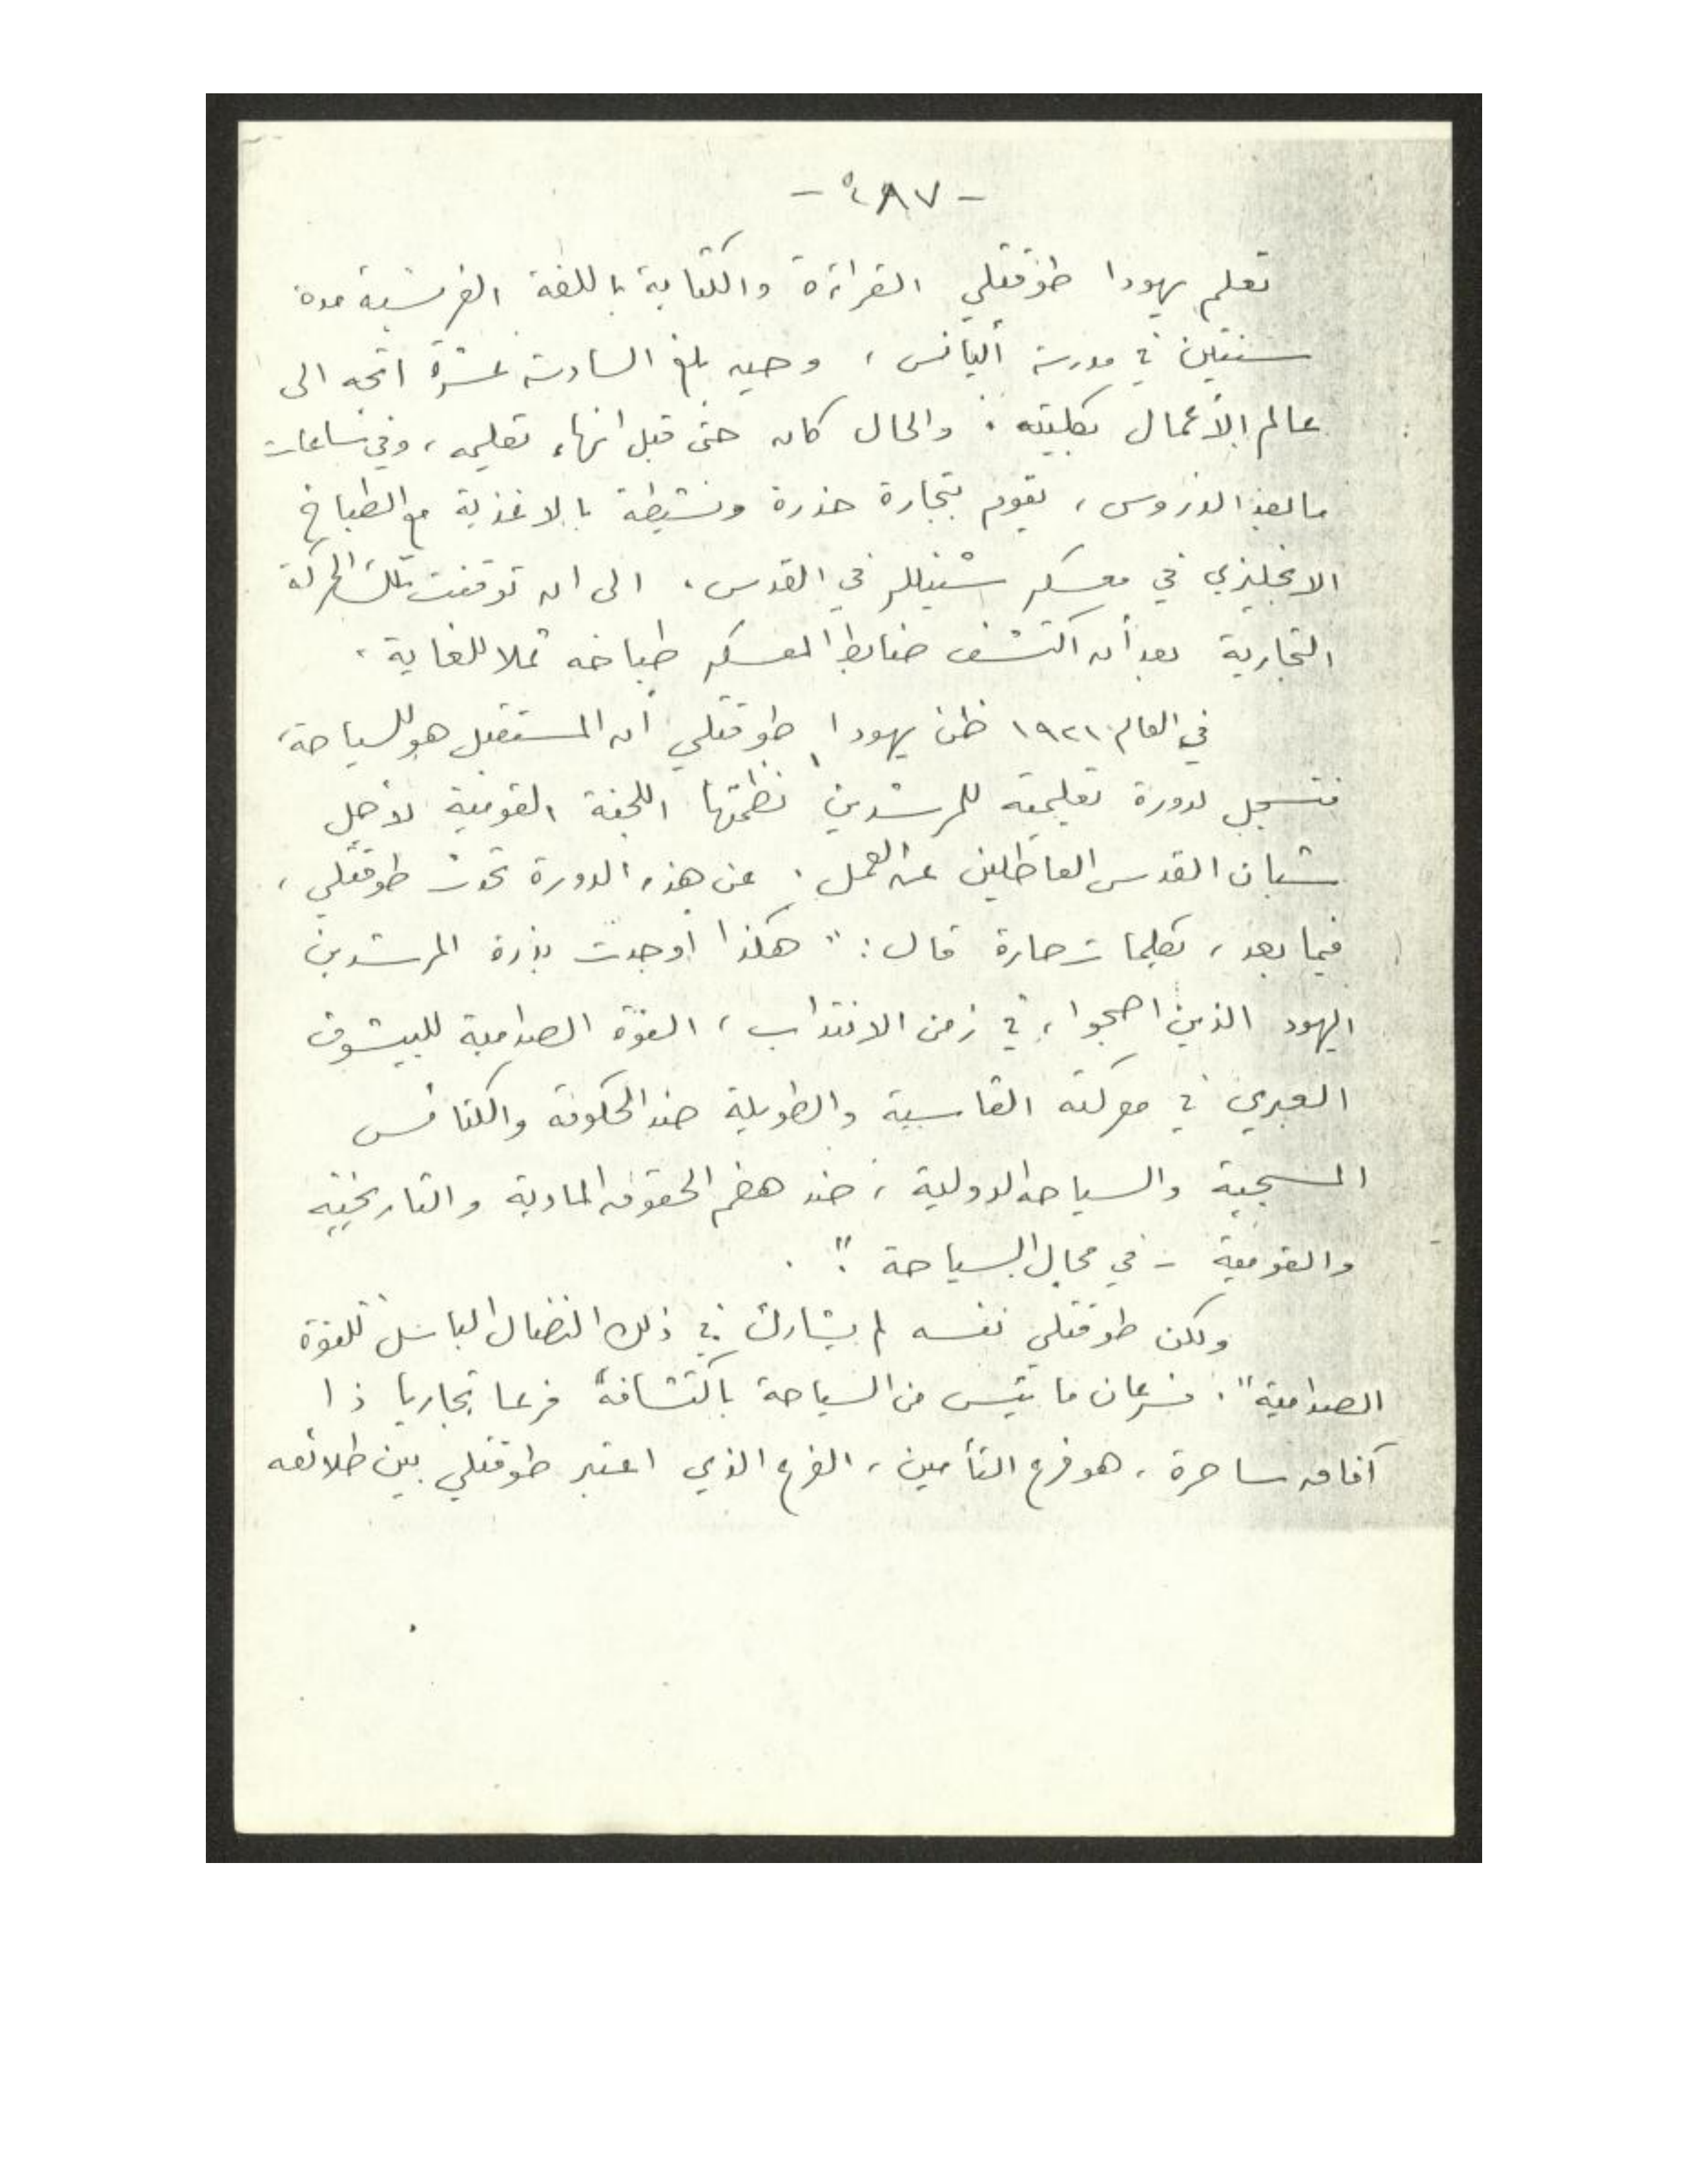 تعلم يهودا طوقتلي القراءة والكتابة باللغة الفرنسية مدة
سنتين في مدرسة أليانس ، وحين بلغ السادسة عشرة اتجه الى
عالم الأعمال بكليته . والحال كان حتى قبل انهاء تعليمه ، وفي ساعات
ما بعد الدروس ، يقوم بتجارة حذرة ونشيطة بالاغذية مع الطباخ
الانجليزي في معسكر شنيللر في القدس . الى ان توقفت تلك الحركة
التجارية بعد أن اكتشف ضابط المعسكر طباخه ثملا للغاية .
في العام ١٩٢١ ظن يهودا طوقتلي أن المستقبل هو للسياحة ،
فتسجل لدورة تعليمية للمرشدين نظمتها اللجنة القومية لأجل
شبان القدس العاطلين عن العمل . عن هذه الدورة تحدث طوقتلي ،
فيما بعد ، بكلمات حارة قال : " هكذا أوجدت بذرة المرشدين
اليهود الذين اصبحوا ، في زمن الانتداب ، القوة الصدامية للييشوف
العبري في معركته القاسية والطويلة ضد الحكومة والكنائس
المسيحية والسياحة الدولية ، ضد هضم الحقوق المادية والتاريخية
والقومية - في مجال السياحة " .
ولكن طوقتلي نفسه لم يشارك في ذلك النضال الباسل للقوة
الصدامية " . فسرعان ما يئس من السياحة باكتشافه فرعا تجاريا ذا
آفاق ساحرة ، هو فرع التأمين ، الفرع الذي اعتبر طوقتلي بين طلائعه